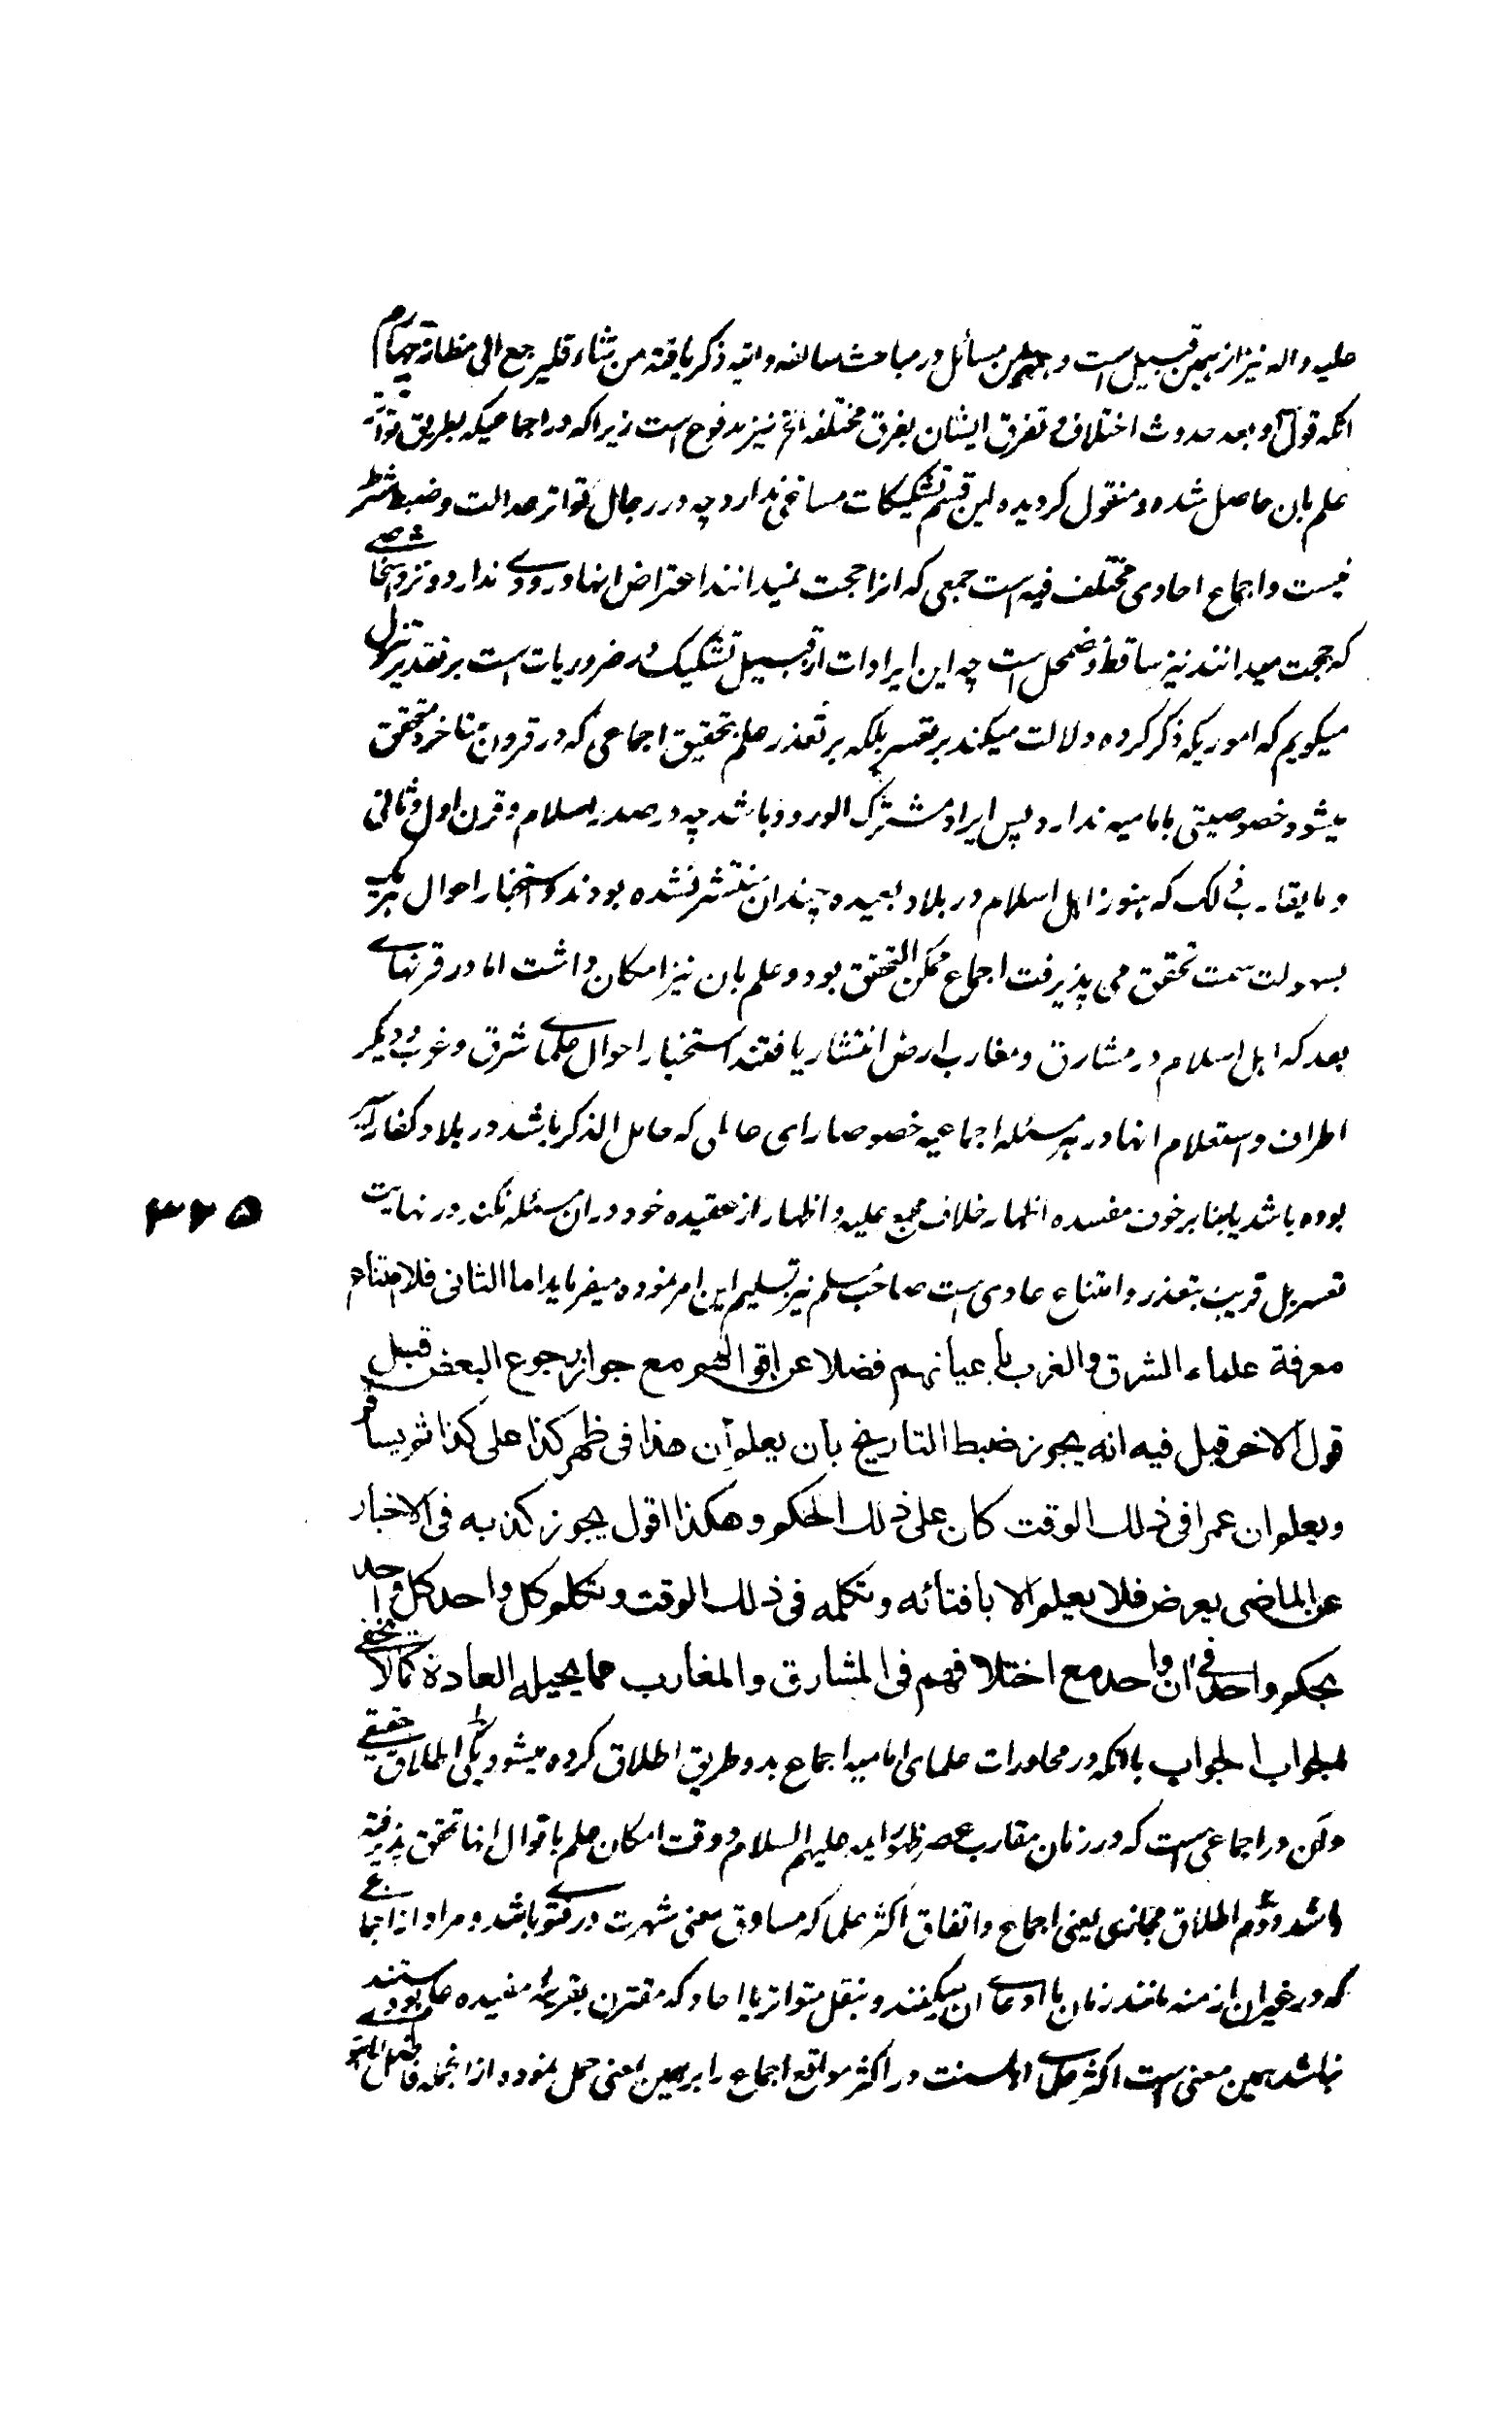 علیه و اله نیز از همین قبیل است و جمله من مسائل در مباحث سالفه و اتیه ذکر یافته من شاء فلیرجع الی مظانه چهارم
انکه قول او بعد حدوث اختلاف و تفرق ایشان بفرق مختلفه الخ نیز مدفوع است زیرا که در اجماعیکه بطریق تواتر
علم بان حاصل شده و منقول کردیده این قسم تشکیکات مساغی ندارد چه در رجال تواتر عدالت و ضبط شرط
نیست و اجماع احادی مختلف فیه است جمعی که انرا حجت نمیدانند اعتراض انها ورودے ندارد و نزد اشخاصے
که حجت میدانند نیز ساقط و مضمحل است چه این ایرادات از قبیل تشکیک در ضروریات است بر تقدیر تنزل
میکویم که اموریکه ذکر کرده دلالت میکند بر تعسر بلکه بر تعذر علم بتحقیق اجماعی که در قرون متاخره متحقق
میشود خصوصیتی بامامیه ندارد پس ایراد مشترک الورود باشد چه در صدر اسلام و قرن اول و ثانی
و ما یقارب ذلک که هنوز اهل اسلام در بلاد بعیده چندان منتشر نشده بودند و استخبار احوال هریک
بسهولت سمت تحقق می پذیرفت اجماع ممکن التحقق بود و علم بان نیز امکان داشت اما در قرنهاے
بعد که اهل اسلام در مشارق و مغارب ارض انتشار یافتند استخبار احوال علماے شرق و غرب و دیکر
اطراف و استعلام انها در هر مسئله اجماعیه خصوصا رای عالمی که خامل الذکر باشد در بلاد کفار اسیر
بوده باشد یا بنا بر خوف مفسده اظهار خلاف مجمع علیه و اظهار از عقیده خود در ان مسئله نکند در نهایت
۳۲۵
تعسر بل قریب بتعذر و امتناع عادی است صاحب مسلم نیز تسلیم این امر نموده میفرماید اما الثانی فلامتناع
معرفة علماء الشرق والغرب بأعیانهم فضلا عن اقوالهم مع جواز رجوع البعض قبل
قول الاخر قیل فیه انه یجوز ضبط التاریخ بان یعلم ان هذا فی ظهر کذا علی کذا ثم یسافر
ویعلم ان عمرا فی ذلک الوقت کان علی ذلک الحکم وهکذا اقول یجوز کذبه فی الاخبار
عن الماضی یعرض فلا یعلم الا بافتائه وتکلمه فی ذلک الوقت وتکلم کل واحد کل واحد
بحکم واحد فی ان واحد مع اختلافهم فی المشارق والمغارب مما یحیله العادة کما لا یخفی
لجواب الجواب بانکه در محاورات علمای امامیه اجماع بدو طریق اطلاق کرده میشود یکی اطلاق حقیقے
و آن در اجماعی است که در زمان مقارب عصر ظهور ایمه علیهم السلام و وقت امکان علم باقوال انها تحقق پذیرفته
باشد دوم اطلاق مجازی یعنی اجماع و اتفاق اکثر علما که مساوق معنی شهرت در فتوے باشد و مراد از اجماعے
که در غیر ان ازمنه مانند زمان ما ادعاے ان میکنند و بنقل متواتر یا احاد که مقترن بقرینهٔ مفیده علم بود مستند
نباشد همین معنی است اکثر علماے اهلسنت در اکثر مواقع اجماع را بر همین معنی حمل نموده از انجمله فاضل